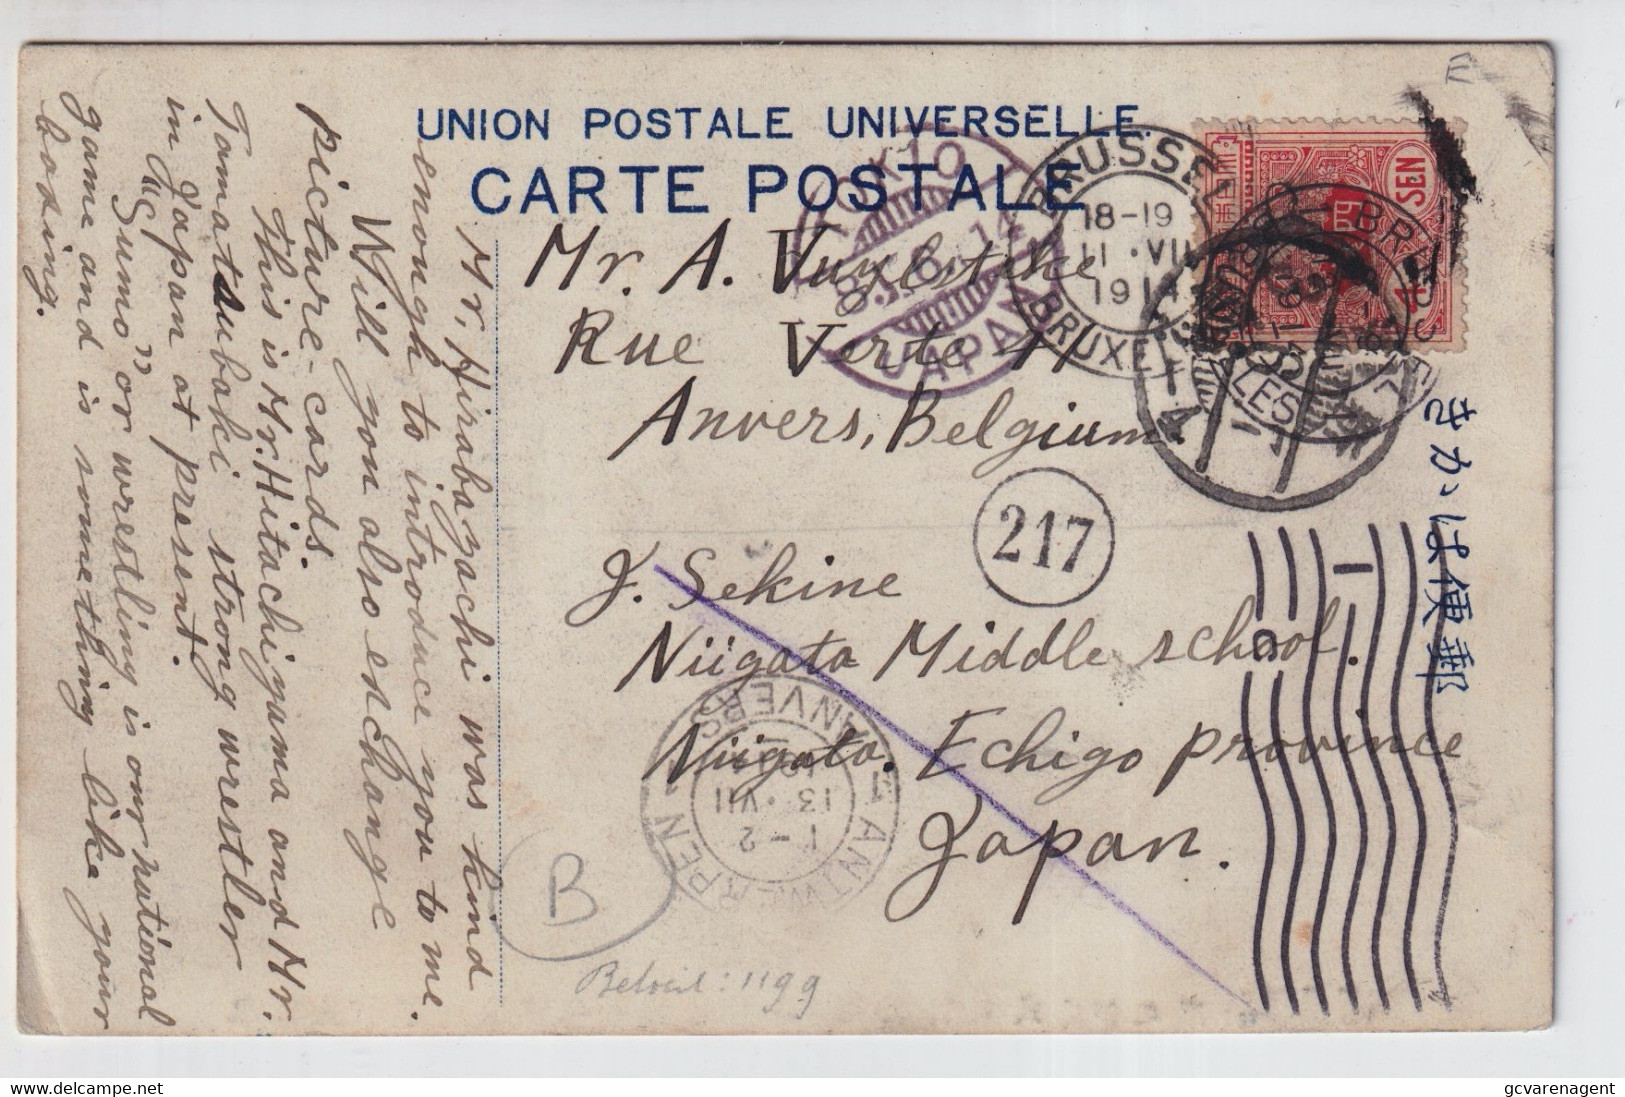 UNION POSTALE UNIVERSELLE.
CARTE POSTALE
Mr. A. Vuylsteke
Rue Verte 11
Anvers, Belgium.
J. Sekine
Niigata Middle school.
Niigata. Echigo province
Japan.
Mr. Hirabayachi was kind
enough to introduce you to me.
Will you also exchange
picture-cards.
This is Mr. Hitachiyama and Mr.
Tamatsubaki strong wrestler
in Japan at present.
"Sumo" or wrestling is our national
game and is something like your
boxing.
きかは便郵
SEN
4
TOKIO
JAPAN
BRUSSEL
18-19
11 · VII
1914
BRUXEL
217
1 ANTWERPEN 1
ANVERS
1-2
13 · VII
B
E
1199
gcvarenagent
delcampe.net